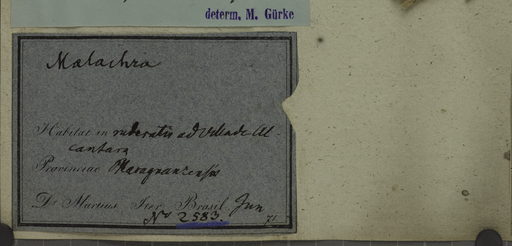 determ. M. Gürke
Malachra
Habitat in ruderatis ad Villa de Al
cantara
Provinciae Maragnanensis
Dr. Martius Iter Brasil Jun
No 2583.